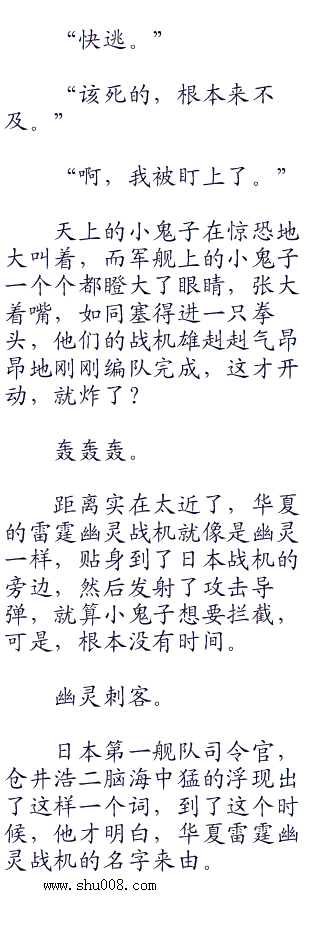 “快逃。”
“该死的，根本来不
及。”
“啊，我被盯上了。”
天上的小鬼子在惊恐地
大叫着，而军舰上的小鬼子
一个个都瞪大了眼睛，张大
着嘴，如同塞得进一只拳
头，他们的战机雄赳赳气昂
昂地刚刚编队完成，这才开
动，就炸了？
轰轰轰。
距离实在太近了，华夏
的雷霆幽灵战机就像是幽灵
一样，贴身到了日本战机的
旁边，然后发射了攻击导
弹，就算小鬼子想要拦截，
可是，根本没有时间。
幽灵刺客。
日本第一舰队司令官，
仓井浩二脑海中猛的浮现出
了这样一个词，到了这个时
候，他才明白，华夏雷霆幽
灵战机的名字来由。
www.shu008.com